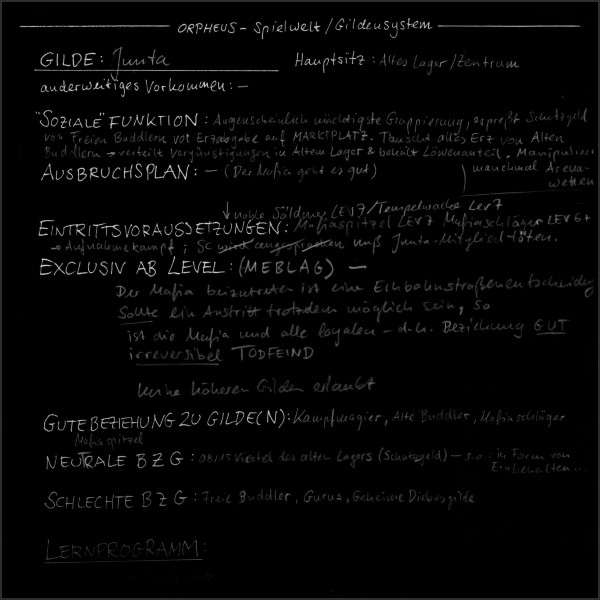 ORPHEUS - Spielwelt / Gildensystem
GILDE: Junta Hauptsitz: Altes Lager/Zentrum
anderweitiges Vorkommen: -
"SOZIALE" FUNKTION: Augenscheinlich mächtigste Gruppierung, erpreßt Schutzgeld
von Freien Buddlern vor Erzabgabe auf MARKTPLATZ. Tauscht alles Erz von Alten
Buddlern → verteilt Vergünstigungen in Altem Lager & behält Löwenanteil. Manipuliert
AUSBRUCHSPLAN: - (Der Mafia geht es gut) manchmal Arena-
wetten
↓ noble Söldner LEV7/Tempelwache LEV7
EINTRITTSVORAUSSETZUNGEN: Mafiaspitzel LEV7 Mafiaschläger LEV6+
→ Aufnahmekampf; SC wird angesprochen muß Junta-Mitglied töten.
EXCLUSIV AB LEVEL: (MEBLAG) -
Der Mafia beizutreten ist eine Einbahnstraßenentscheidung
Sollte ein Austritt trotzdem möglich sein, so
ist die Mafia und alle loyalen - d.h. Beziehung GUT
irreversibel TODFEIND
keine höheren Gilden erlaubt
GUTE BEZIEHUNG ZU GILDE(N): Kampfmagier, Alte Buddler, Mafiaschläger
Mafiaspitzel
NEUTRALE BZG: Viertel des alten Lagers (Schutzgeld) - s.o.: in Form von
Einbehalten...
SCHLECHTE BZG: Freie Buddler, Gurus, Geheime Diebesgilde
LERNPROGRAMM: